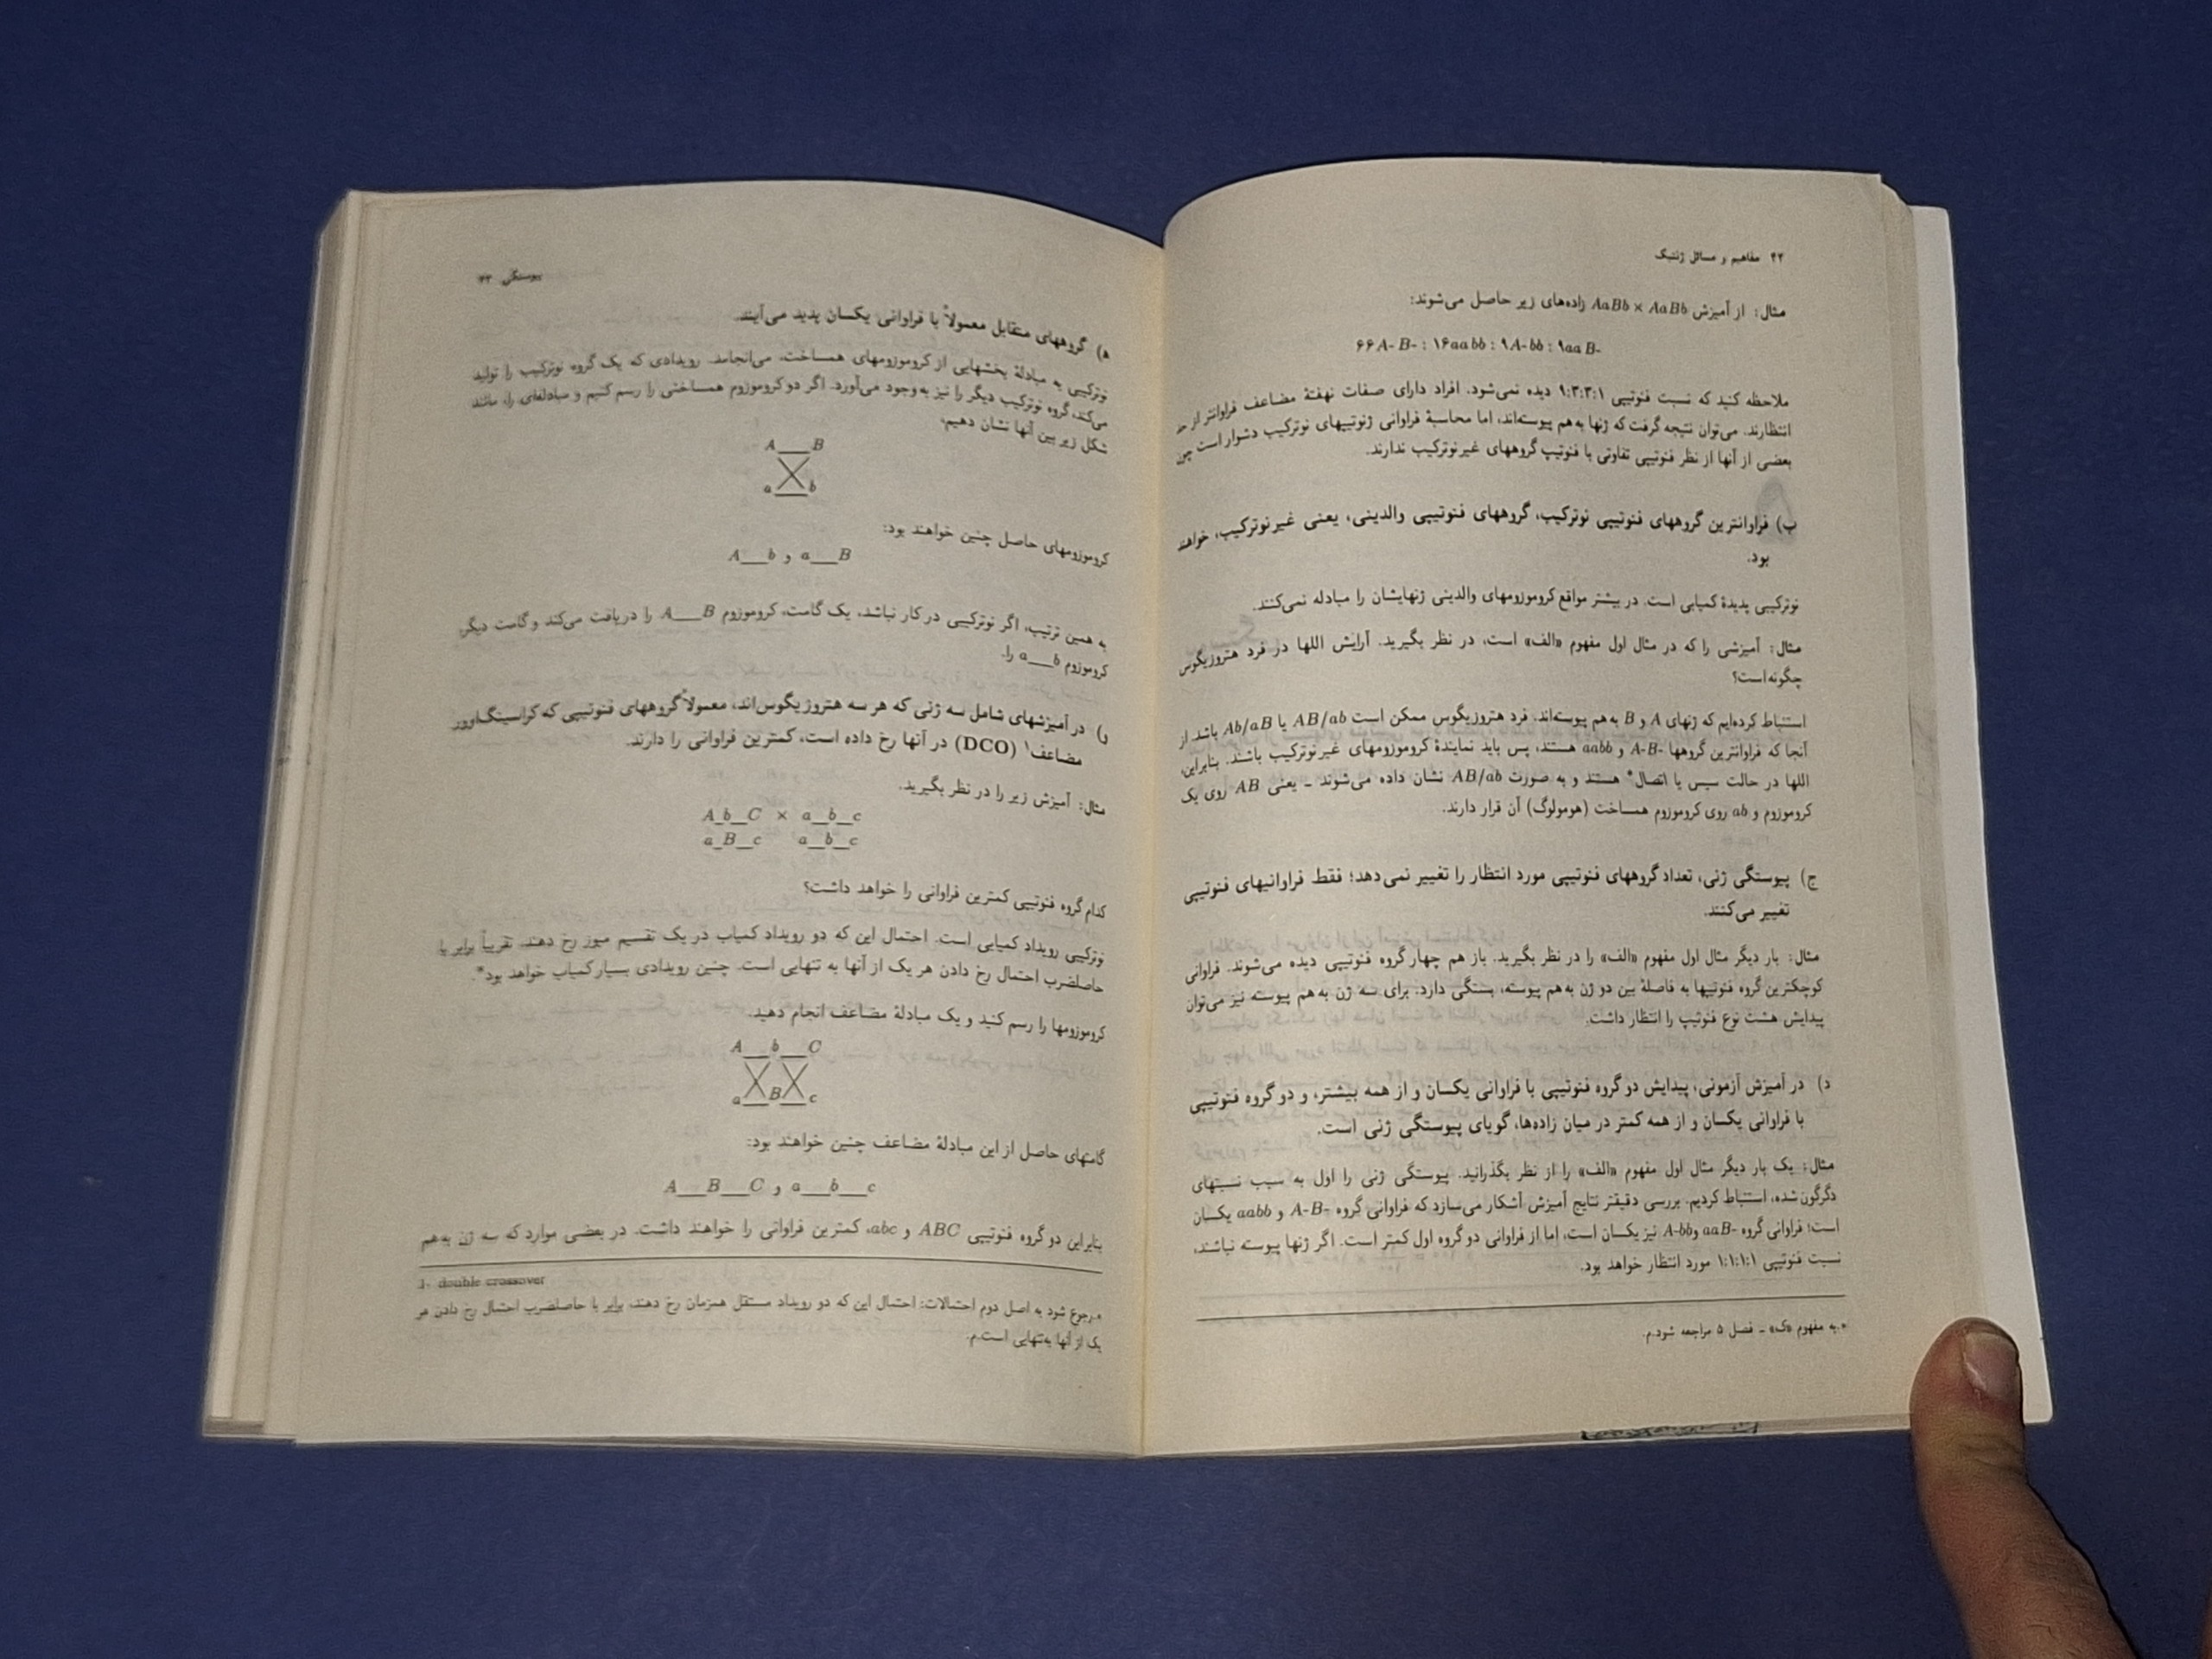 ۴۲ مفاهیم و مسائل ژنتیک
مثال: از آمیزش AaBb × AaBb زاده‌های زیر حاصل می‌شوند:
۶۶A-B- : ۱۶aabb : ۹A-bb : ۹aaB-
ملاحظه کنید که نسبت فنوتیپی ۹:۳:۳:۱ دیده نمی‌شود. افراد دارای صفات نهفتهٔ مضاعف فراوانتر از حد
انتظارند. می‌توان نتیجه گرفت که ژنها به‌هم پیوسته‌اند، اما محاسبهٔ فراوانی ژنوتیپهای نوترکیب دشوار است چون
بعضی از آنها از نظر فنوتیپی تفاوتی با فنوتیپ گروههای غیرنوترکیب ندارند.
ب) فراوانترین گروههای فنوتیپی نوترکیب، گروههای فنوتیپی والدینی، یعنی غیرنوترکیب، خواهند
بود.
نوترکیبی پدیدهٔ کمیابی است. در بیشتر مواقع کروموزومهای والدینی ژنهایشان را مبادله نمی‌کنند.
مثال: آمیزشی را که در مثال اول مفهوم «الف» است، در نظر بگیرید. آرایش اللها در فرد هتروزیگوس
چگونه‌است؟
استنباط کرده‌ایم که ژنهای A و B به‌هم پیوسته‌اند. فرد هتروزیگوس ممکن است AB/ab یا Ab/aB باشد. از
آنجا که فراوانترین گروهها A-B- و aabb هستند، پس باید نمایندهٔ کروموزومهای غیرنوترکیب باشند. بنابراین،
اللها در حالت سیس یا اتصال* هستند و به صورت AB/ab نشان داده می‌شوند ـ یعنی AB روی یک
کروموزوم و ab روی کروموزوم همساخت (هومولوگ) آن قرار دارند.
ج) پیوستگی ژنی، تعداد گروههای فنوتیپی مورد انتظار را تغییر نمی‌دهد؛ فقط فراوانیهای فنوتیپی
تغییر می‌کنند.
مثال: بار دیگر مثال اول مفهوم «الف» را در نظر بگیرید. باز هم چهار گروه فنوتیپی دیده می‌شوند. فراوانی
کوچکترین گروه فنوتیپها به فاصلهٔ بین دو ژن به‌هم پیوسته، بستگی دارد. برای سه ژن به‌هم پیوسته نیز می‌توان
پیدایش هشت نوع فنوتیپ را انتظار داشت.
د) در آمیزش آزمونی، پیدایش دو گروه فنوتیپی با فراوانی یکسان و از همه بیشتر، و دو گروه فنوتیپی
با فراوانی یکسان و از همه کمتر در میان زاده‌ها، گویای پیوستگی ژنی است.
مثال: یک بار دیگر مثال اول مفهوم «الف» را از نظر بگذرانید. پیوستگی ژنی را اول به سبب نسبتهای
دگرگون‌شده، استنباط کردیم. بررسی دقیقتر نتایج آمیزش آشکار می‌سازد که فراوانی گروه A-B- و aabb یکسان
است؛ فراوانی گروه aaB- و A-bb نیز یکسان است، اما از فراوانی دو گروه اول کمتر است. اگر ژنها پیوسته نباشند،
نسبت فنوتیپی ۱:۱:۱:۱ مورد انتظار خواهد بود.
*.به مفهوم «ک» ـ فصل ۵ مراجعه شود.م.
پیوستگی ۴۳
ه) گروههای متقابل معمولاً با فراوانی یکسان پدید می‌آیند.
نوترکیبی به مبادلهٔ بخشهایی از کروموزومهای همساخت، می‌انجامد. رویدادی که یک گروه نوترکیب را تولید
می‌کند، گروه نوترکیب دیگر را نیز به‌وجود می‌آورد. اگر دو کروموزوم همساختی را رسم کنیم و مبادله‌ای را، مانند
شکل زیر بین آنها نشان دهیم،
A___B
a___b
کروموزومهای حاصل چنین خواهند بود:
A___b و a___B
به همین ترتیب، اگر نوترکیبی در کار نباشد، یک گامت، کروموزوم A___B را دریافت می‌کند و گامت دیگر،
کروموزوم a___b را.
و) در آمیزشهای شامل سه ژنی که هر سه هتروزیگوس‌اند، معمولاً گروههای فنوتیپی که کراسینگ‌اوور
مضاعف۱ (DCO) در آنها رخ داده است، کمترین فراوانی را دارند.
مثال: آمیزش زیر را در نظر بگیرید.
A_b_C × a_b_c
a_B_c a_b_c
کدام گروه فنوتیپی کمترین فراوانی را خواهد داشت؟
نوترکیبی رویداد کمیابی است. احتمال این که دو رویداد کمیاب در یک تقسیم میوز رخ دهند، تقریباً برابر با
حاصلضرب احتمال رخ دادن هر یک از آنها به تنهایی است. چنین رویدادی بسیار کمیاب خواهد بود*.
کروموزومها را رسم کنید و یک مبادلهٔ مضاعف انجام دهید.
A___b___C
a___B___c
گامتهای حاصل از این مبادلهٔ مضاعف چنین خواهند بود:
A___B___C و a___b___c
بنابراین دو گروه فنوتیپی ABC و abc، کمترین فراوانی را خواهند داشت. در بعضی موارد که سه ژن به‌هم
1. double crossover
*.رجوع شود به اصل دوم احتمالات: احتمال این که دو رویداد مستقل همزمان رخ دهند، برابر با حاصلضرب احتمال رخ دادن هر
یک از آنها به‌تنهایی است.م.